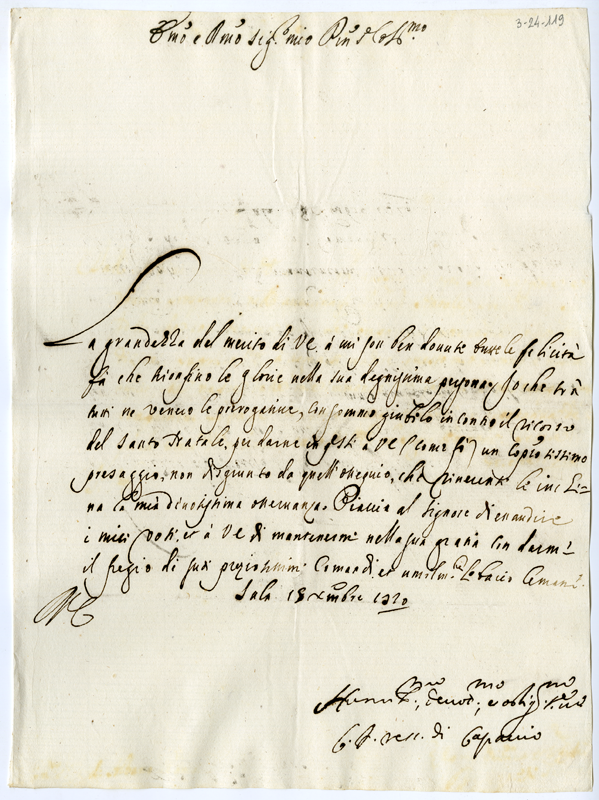 3-24-119
Emo e Rmo Sig.r mio Prn Colmo
La grandezza del merito di VE. à cui son ben dovute tutte le felicità
fà che trionfino le glorie nella sua degnissima persona. Io che trà
tutti ne venero le prerogative, con sommo giubilo incontro il ricorso
del Santo Natale, per darne in questi à VE (come fò) un copiosissimo
presaggio, non disgiunto da quell'ossequio, che rinevente le incli=
na la mia divotissima osservanza. Piaccia al Signore di esaudire
i miei voti, et à VE di mantenermi nella sua gratia con darmi
il fregio di suoi pregiatissimi Comandi, et umilm.e le bacio le mani.
Sala 18 Xmbre 1720
VE
Humil.mo, devot.mo, e oblig.mo Ser.
di Capaccio